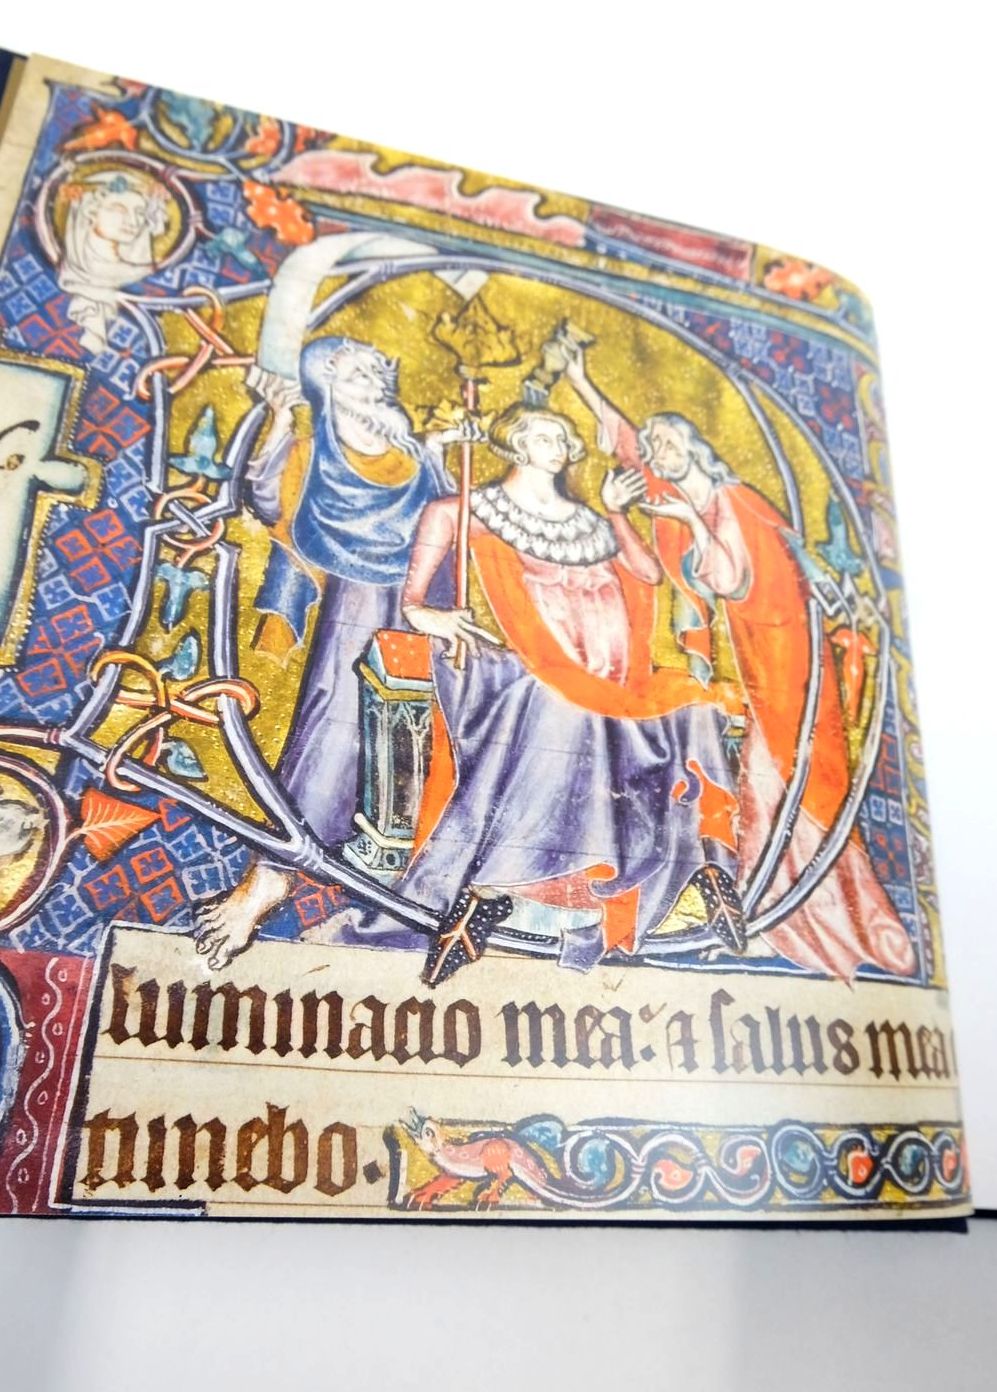 luminacio mea: ⁊ salus mea
timebo.